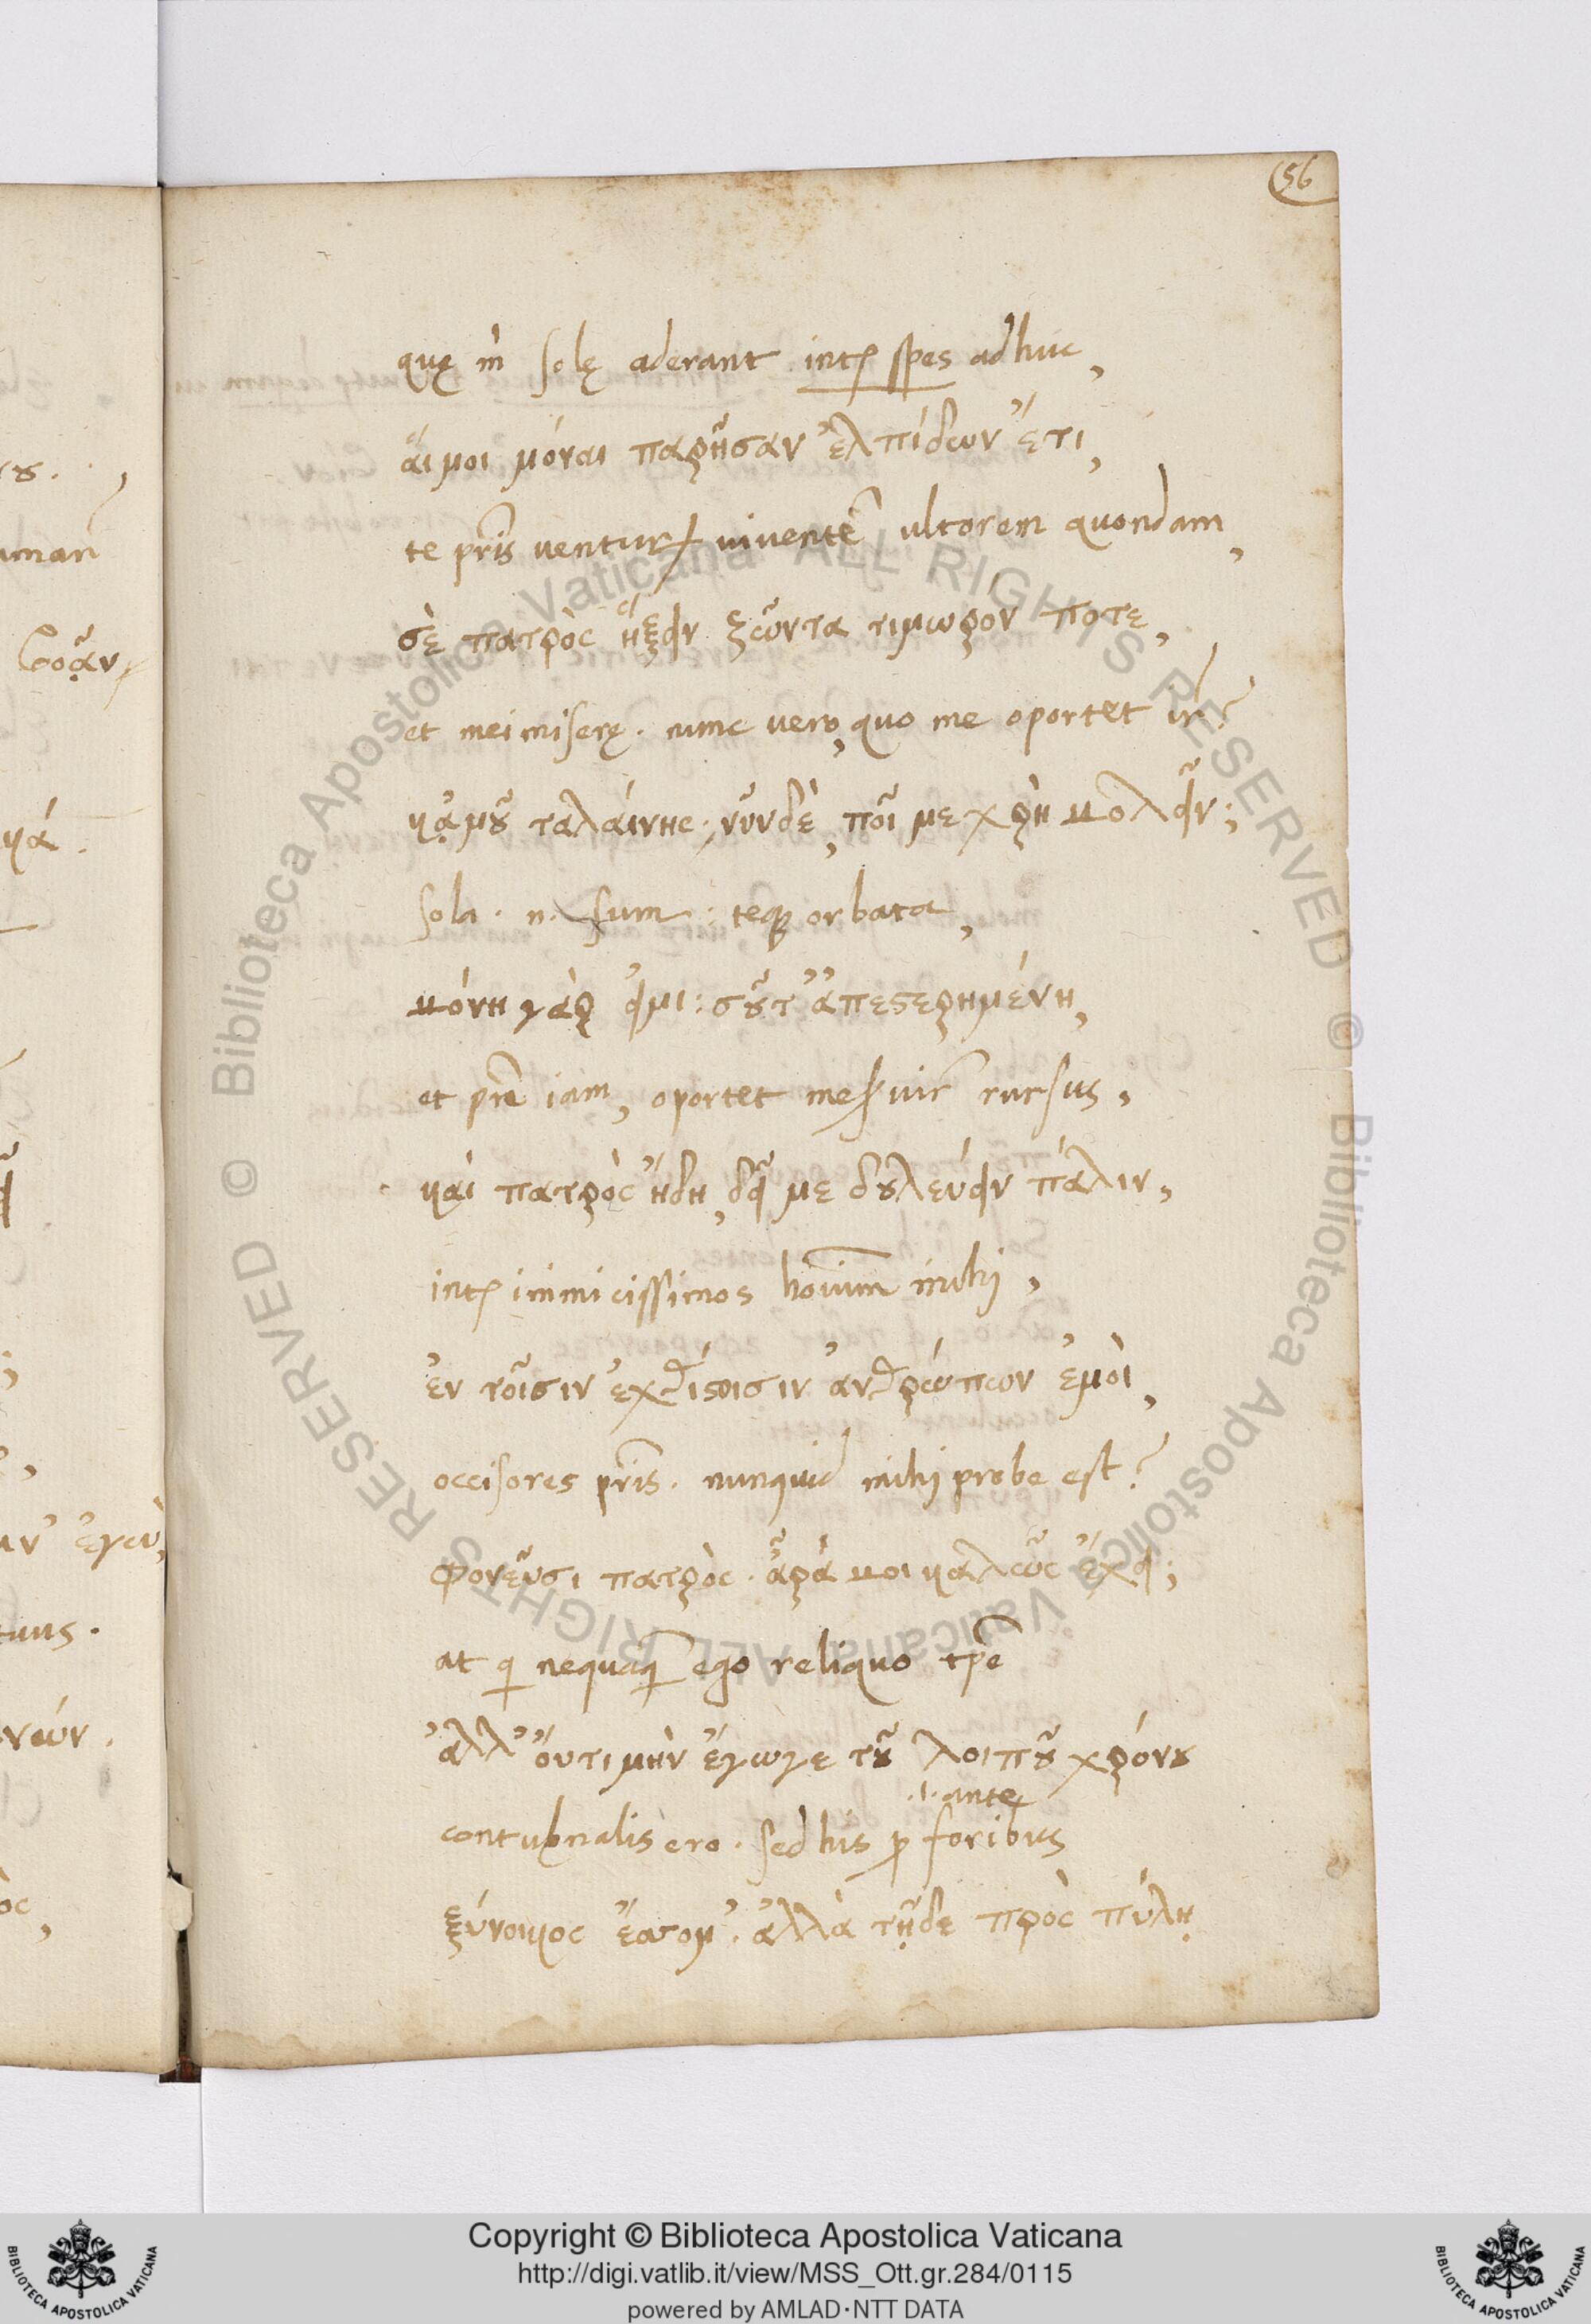 56
quę m̀ solę aderant intꝑ spes adhuc,
ἅι μοι μόναι παρῆσαν ἐλπίδων ἔτι,
te pr̃is ventur viventẽ ultorem quondam,
σὲ πατρὸς ἥξειν ζῶντα τιμωρὸν ποτε,
et mei miserę. nunc vero, quo me oportet ir̃?
κᾀμȣ̃ ταλάινης· νῦν δὲ, ποῖ με χρὴ μολεῖν;
sola .n. sum: teqꝫ orbata,
μόνη γὰρ ἐιμι: σȣ̃ τ' ἀπεϛερημένη,
et pr̃e iam, oportet me suir̃ rursus,
καὶ πατρὸς ἤδη, δεῖ με δȣλεύειν πάλιν,
intꝑ inimicissimos hoĩum mihj,
ἐν τοῖσιν ἐχθίϛοισιν ἀνθρώπων ἐμοὶ,
occisores pr̃is. nunquid mihj probe est?
φονεῦσι πατρὸς. ἆρά μοι καλῶς ἔχει;
at q nequaq̃ ego reliquo tp̃e
ἀλλ' ὄυτι μὴν ἔγωγε τȣ̃ λοιπȣ̃ χρόνȣ
.i. ante
contubnalis ero. sed his ꝓ foribus
ξύνοικος ἔσομ'. ἀλλὰ τῇδε πρὸς πύλῃ
Copyright © Biblioteca Apostolica Vaticana
http://digi.vatlib.it/view/MSS_Ott.gr.284/0115
powered by AMLAD·NTT DATA
BIBLIOTECA APOSTOLICA VATICANA
BIBLIOTECA APOSTOLICA VATICANA
© Biblioteca Apostolica Vaticana ALL RIGHTS RESERVED © Biblioteca Apostolica Vaticana ALL RIGHTS RESERVED